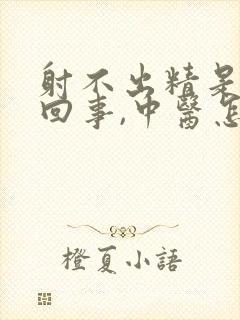 射不出精是
回事,中醫怎
橙夏小語